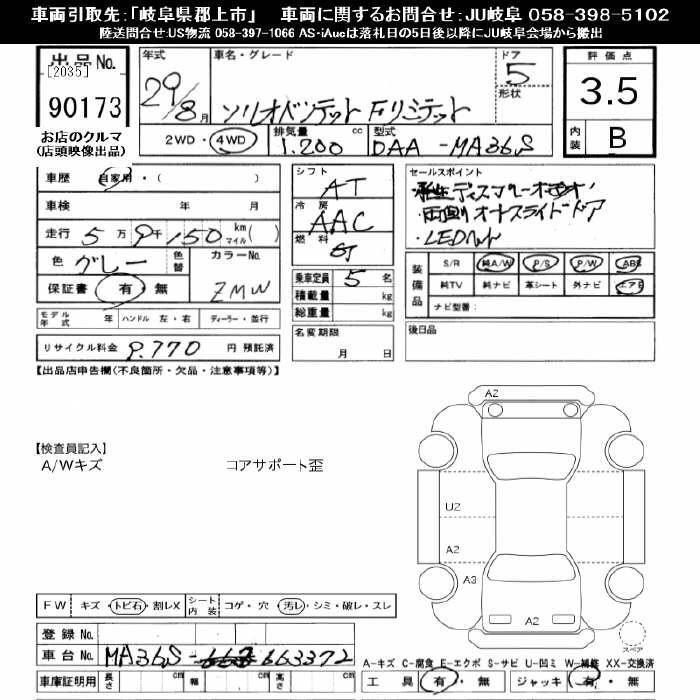 車両引取先:「岐阜県郡上市」 車両に関するお問合せ:JU岐阜 058-398-5102
陸送問合せ:US物流 058-397-1066 AS-iAucは落札日の5日後以降にJU岐阜会場から搬出
出品No.
[2035]
90173
お店のクルマ
(店頭映像出品)
年式
29/8月
車名・グレード
ソリオバンデット Fリミテット
ドア
5
形状
評価点
3.5
内装
B
2WD・4WD
排気量
1.200 cc
型式
DAA-MA36S
車歴 自家用・( )
車検 年 月
走行 5万9千150 km( )マイル
色 グレー 色替
カラーNo.
ZMW
保証書 有・無
モデル年式 年 ハンドル 左・右 ディーラー・並行
リサイクル料金 9.770 円 預託済
シフト
AT
冷房
AAC
燃料
乗車定員 5 名
積載量 kg
総重量 kg
名変期限
月 日
セールスポイント
・両側オートスライドドア
・LEDヘット
装備品
S/R 純A/W P/S P/W ABS
純TV 純ナビ 革シート 外ナビ エアB
ナビ型番:
後日品
【出品店申告欄(不良箇所・欠品・注意事項等)】
【検査員記入】
A/Wキズ コアサポート歪
A2
U2
A2
A3
A2
スペア
FW キズ・トビ石・割レX シート内装 コゲ・穴・汚レ・シミ・破レ・スレ
登録No.
車台No. MA36S-663372
車庫証明用 長さ cm 幅 cm 高さ cm
A-キズ C-腐食 E-エクボ S-サビ U-凹ミ W-補修 XX-交換済
工具 有・無 ジャッキ 有・無